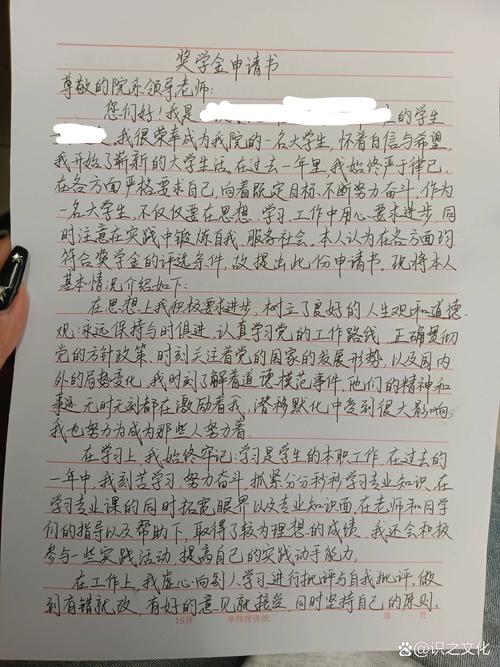 奖学金申请书
尊敬的院系领导老师:
您们好!我是
的学生
,我很荣幸成为我院的一名大学生,怀着自信与希望,
我开始了崭新的大学生活。在过去一年里,我始终严于律己,
在各方面严格要求自己,向着既定目标,不断努力奋斗。作为
一名大学生,不仅仅要在思想、学习、工作中用心要求进步,同
时注意在实践中锻炼自我,服务社会。本人认为在各方面均
符合奖学金的评选条件,故提出此份申请书。现将本人
基本情况介绍如下:
在思想上,我积极要求进步,树立了良好的人生观和道德
观;永远保持与时俱进,认真学习党的工作路线,正确贯彻
党的方针政策,时刻关注着党的国家的发展形势,以及国内
外的局势变化。我时刻了解着道德模范事件,他们的精神和
事迹无时无刻都在激励着我,潜移默化中受到很大影响,
我也努力为成为那些人努力着。
在学习上,我始终牢记:学习是学生的本职工作,在过去的
一年中,我刻苦学习,努力奋斗,抓紧分分秒秒学习专业知识,在
学习专业课的同时拓宽眼界以及专业知识面,在老师和同学
们的指导以及帮助下,取得了较为理想的成绩。我还会积极
参与一些实践活动,提高自己的实践动手能力。
在工作上,我虚心向别人学习,进行批评与自我批评,做
到有错就改,有好的意见就接受,同时坚持自己的原则。
16开 单线报告纸 第 页
@识之文化